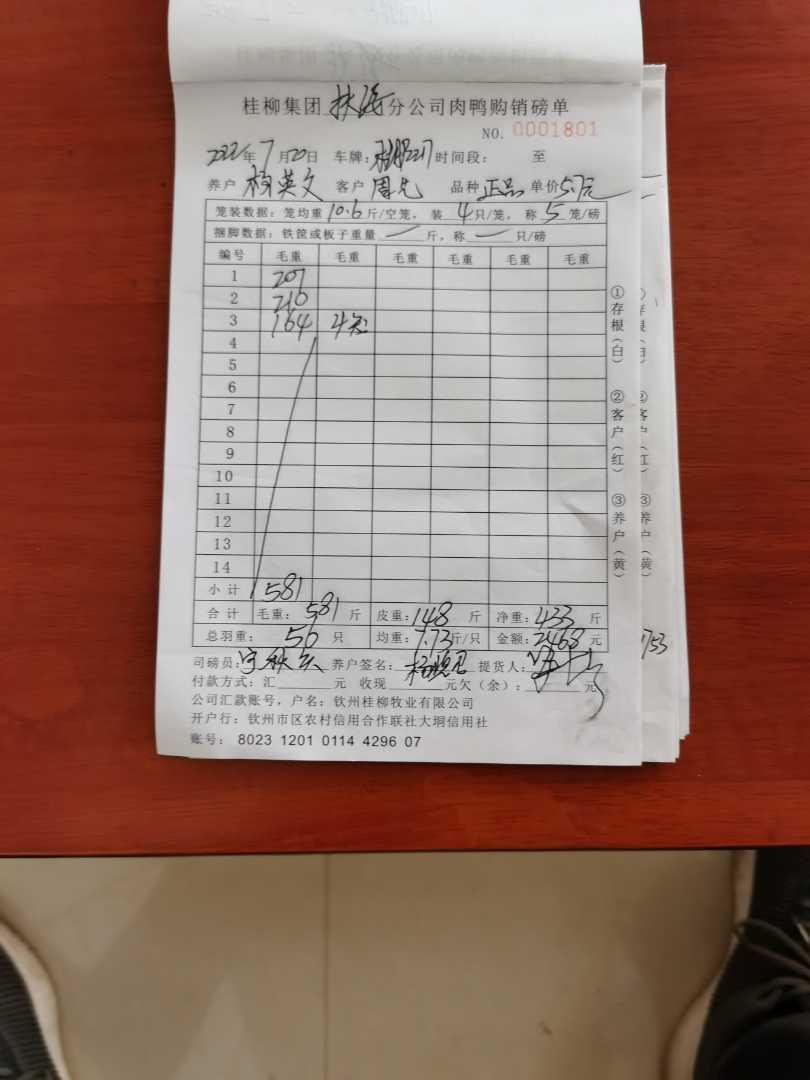 桂柳集团 扶海 分公司肉鸭购销磅单
NO. 0001801
2022年 7月20日 车牌: 时间段: 至
养户 杨英文 客户 周凡 品种 正品 单价 5.7元
笼装数据: 笼均重 10.6 斤/空笼, 装 4 只/笼, 称 5 笼/磅
捆脚数据: 铁筐或板子重量 — 斤, 称 — 只/磅
编号 毛重 毛重 毛重 毛重 毛重 毛重
1 207
2 210
3 164 4知
4
5
6
7
8
9
10
11
12
13
14
小计 581
合计 毛重: 581 斤 皮重: 148 斤 净重: 433 斤
总羽重: 56 只 均重: 7.73 斤/只 金额: 2468 元
司磅员: 养户签名: 提货人:
付款方式: 汇 元 收现 元欠(余): 元
公司汇款账号, 户名: 钦州桂柳牧业有限公司
开户行: 钦州市区农村信用合作联社大垌信用社
账号: 8023 1201 0114 4296 07
①存根(白)
②客户(红)
③养户(黄)
②客户(红)
③养户(黄)
1753